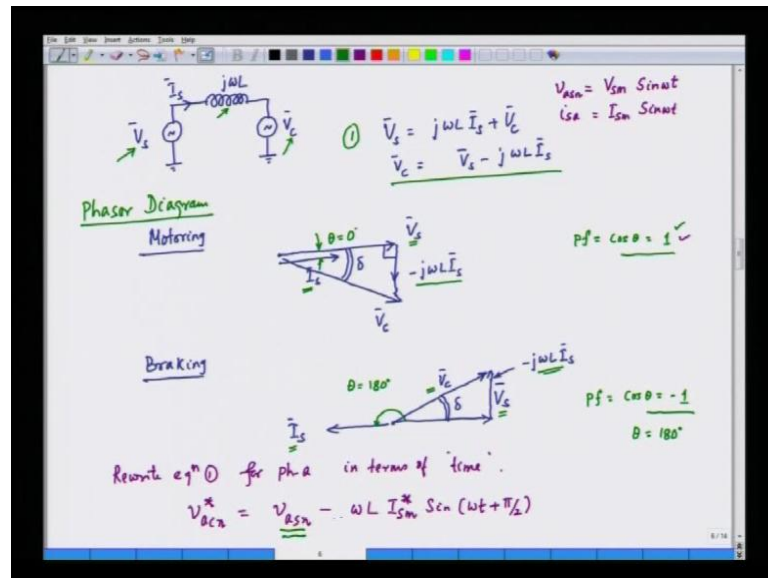 File Edit View Insert Actions Tools Help
V̄s
Īs
jωL
V̄c
① V̄s = jωL Īs + V̄c
V̄c = V̄s - jωL Īs
vasn = Vsm Sinωt
isa = Ism Sinωt
Phasor Diagram
Motoring
θ=0°
V̄s
δ
Īs
-jωLĪs
V̄c
Pf = Cosθ = 1
Braking
θ=180°
V̄c
-jωLĪs
δ
V̄s
Īs
Pf = Cosθ = -1
θ = 180°
Rewrite eqn ① for ph a in terms of 'time'.
v*acn = vasn - ωL I*sm Sin(ωt + π/2)
6